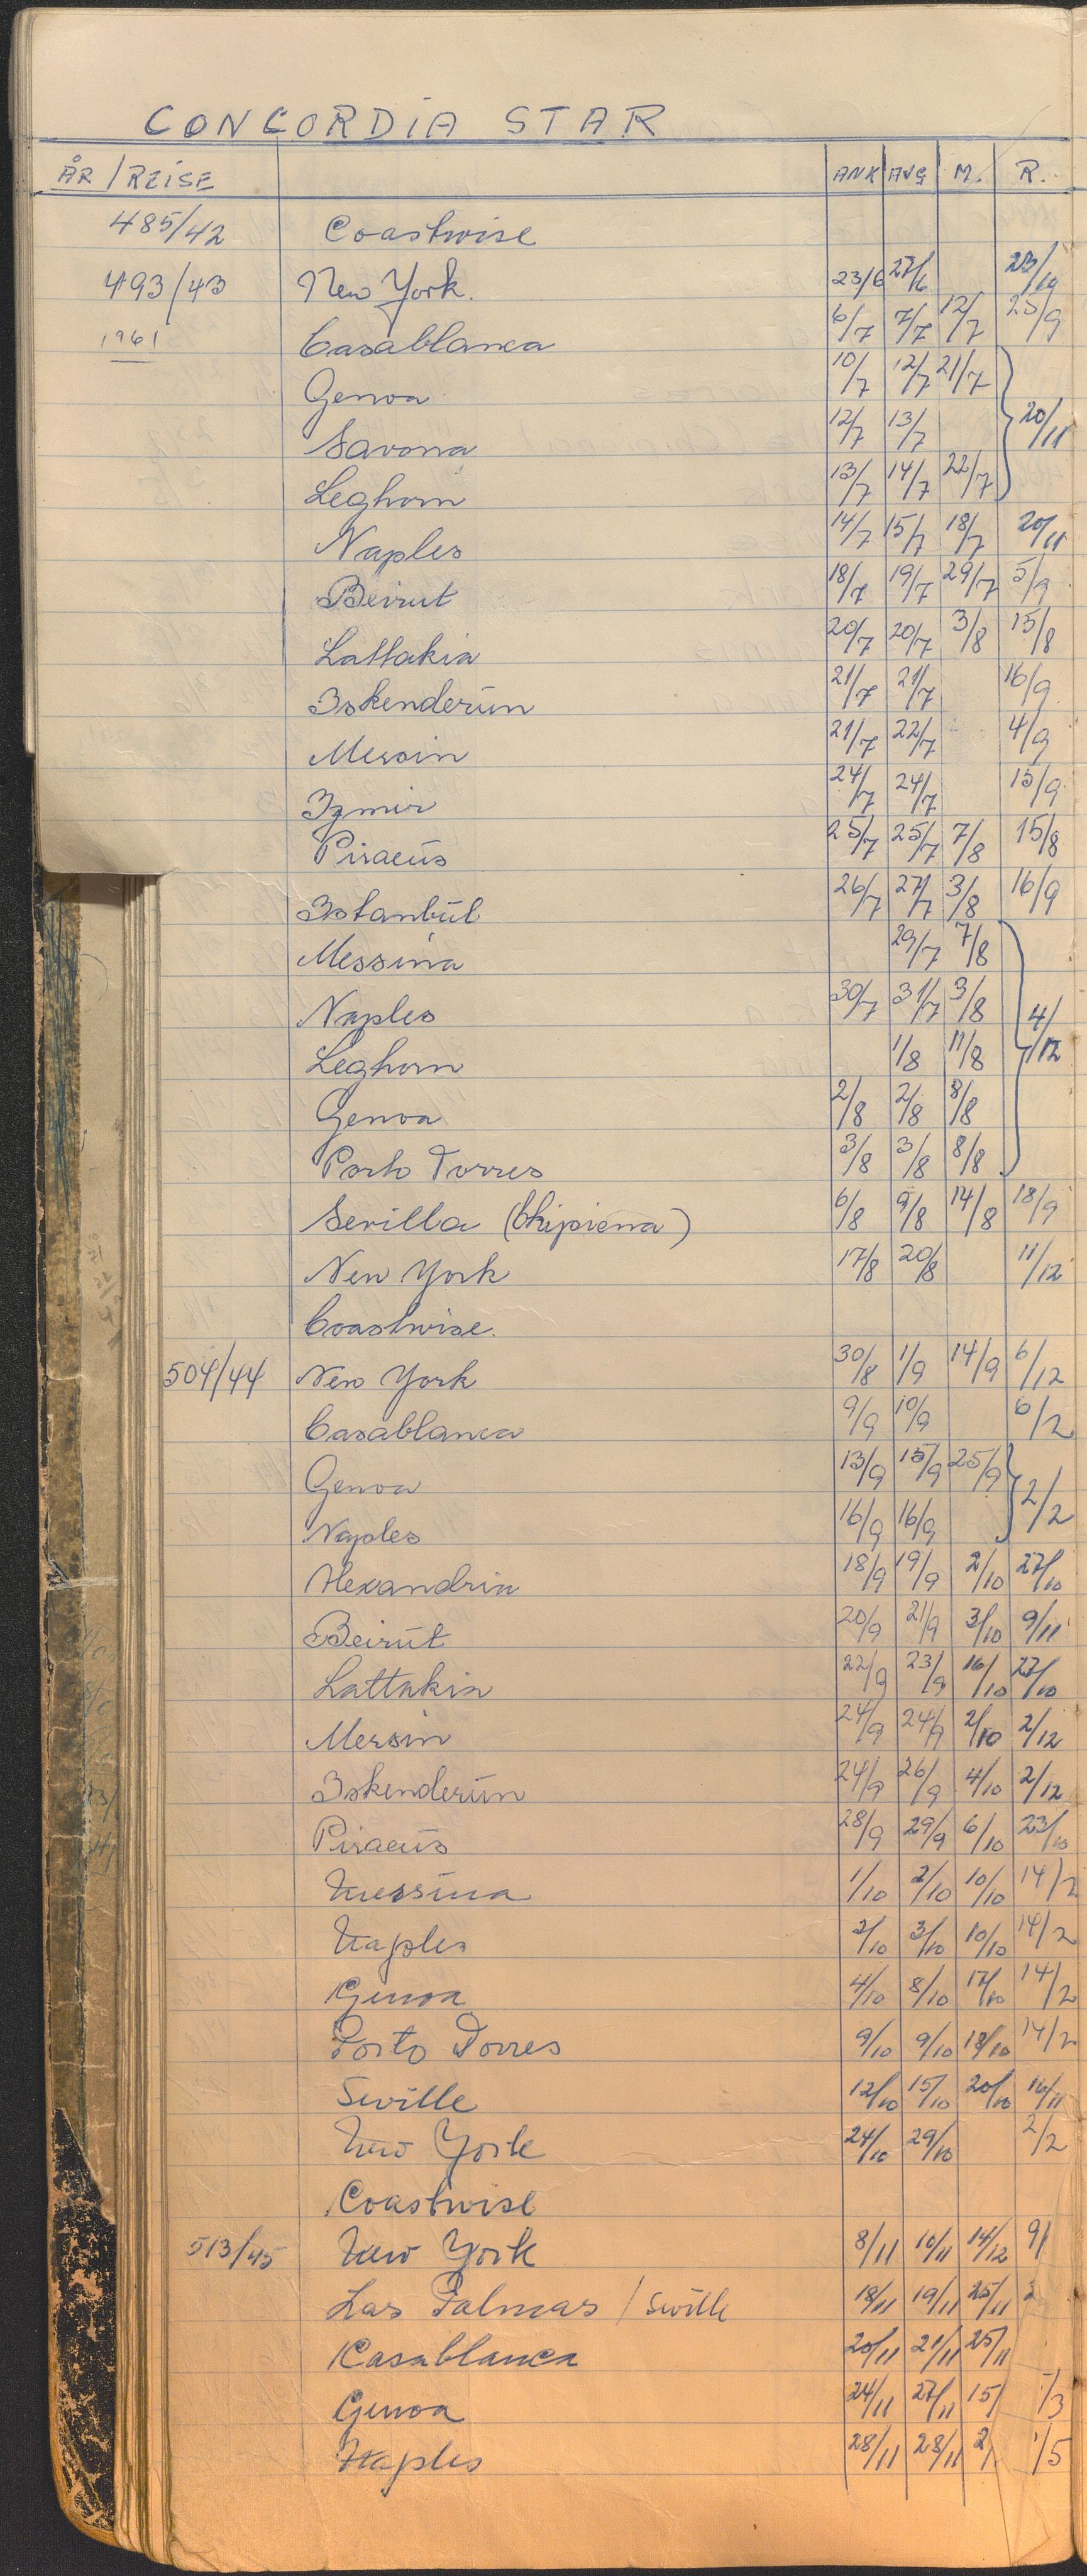 CONCORDIA STAR
ÅR / REISE ANK AVG M. R.
485/42 Coastwise
493/43 New York. 23/6 27/6
1961 Casablanca 6/7 7/7 12/7 25/9
Genoa 10/7 12/7 21/7
Savona 12/7 13/7 20/11
Leghorn 13/7 14/7 22/7
Naples 14/7 15/7 18/7 20/11
Beirut 18/7 19/7 29/7 5/9
Lattakia 20/7 20/7 3/8 15/8
Iskenderun 21/7 21/7 16/9
Mersin 21/7 22/7 4/9
Izmir 24/7 24/7 15/9
Piraeus 25/7 25/7 7/8 15/8
Istanbul 26/7 27/7 3/8 16/9
Messina 29/7 7/8
Naples 30/7 31/7 3/8 4/12
Leghorn 1/8 11/8
Genoa 2/8 2/8 8/8
Porto Torres 3/8 3/8 8/8
Sevilla (Chipiona) 6/8 9/8 14/8 18/9
New York 17/8 20/8 11/12
Coastwise.
504/44 New York 30/8 1/9 14/9 6/12
Casablanca 9/9 10/9 6/2
Genoa 13/9 15/9 25/9 2/2
Naples 16/9 16/9
Alexandria 18/9 19/9 2/10 27/10
Beirut 20/9 21/9 3/10 9/11
Lattakia 22/9 23/9 16/10 27/10
Mersin 24/9 24/9 2/10 2/12
Iskenderun 24/9 26/9 4/10 2/12
Piraeus 28/9 29/9 6/10 23/10
Messina 1/10 2/10 10/10 14/2
Naples 2/10 3/10 10/10 14/2
Genoa 4/10 8/10 17/10 14/2
Porto Torres 9/10 9/10 18/10 14/2
Seville 12/10 15/10 20/10 16/11
New York 24/10 29/10 2/2
Coastwise
513/45 New York 8/11 10/11 14/12 9/
Las Palmas / Seville 18/11 19/11 25/11
Casablanca 20/11 21/11 25/11
Genoa 24/11 27/11 15/ 1/3
Naples 28/11 28/11 2/ 1/5